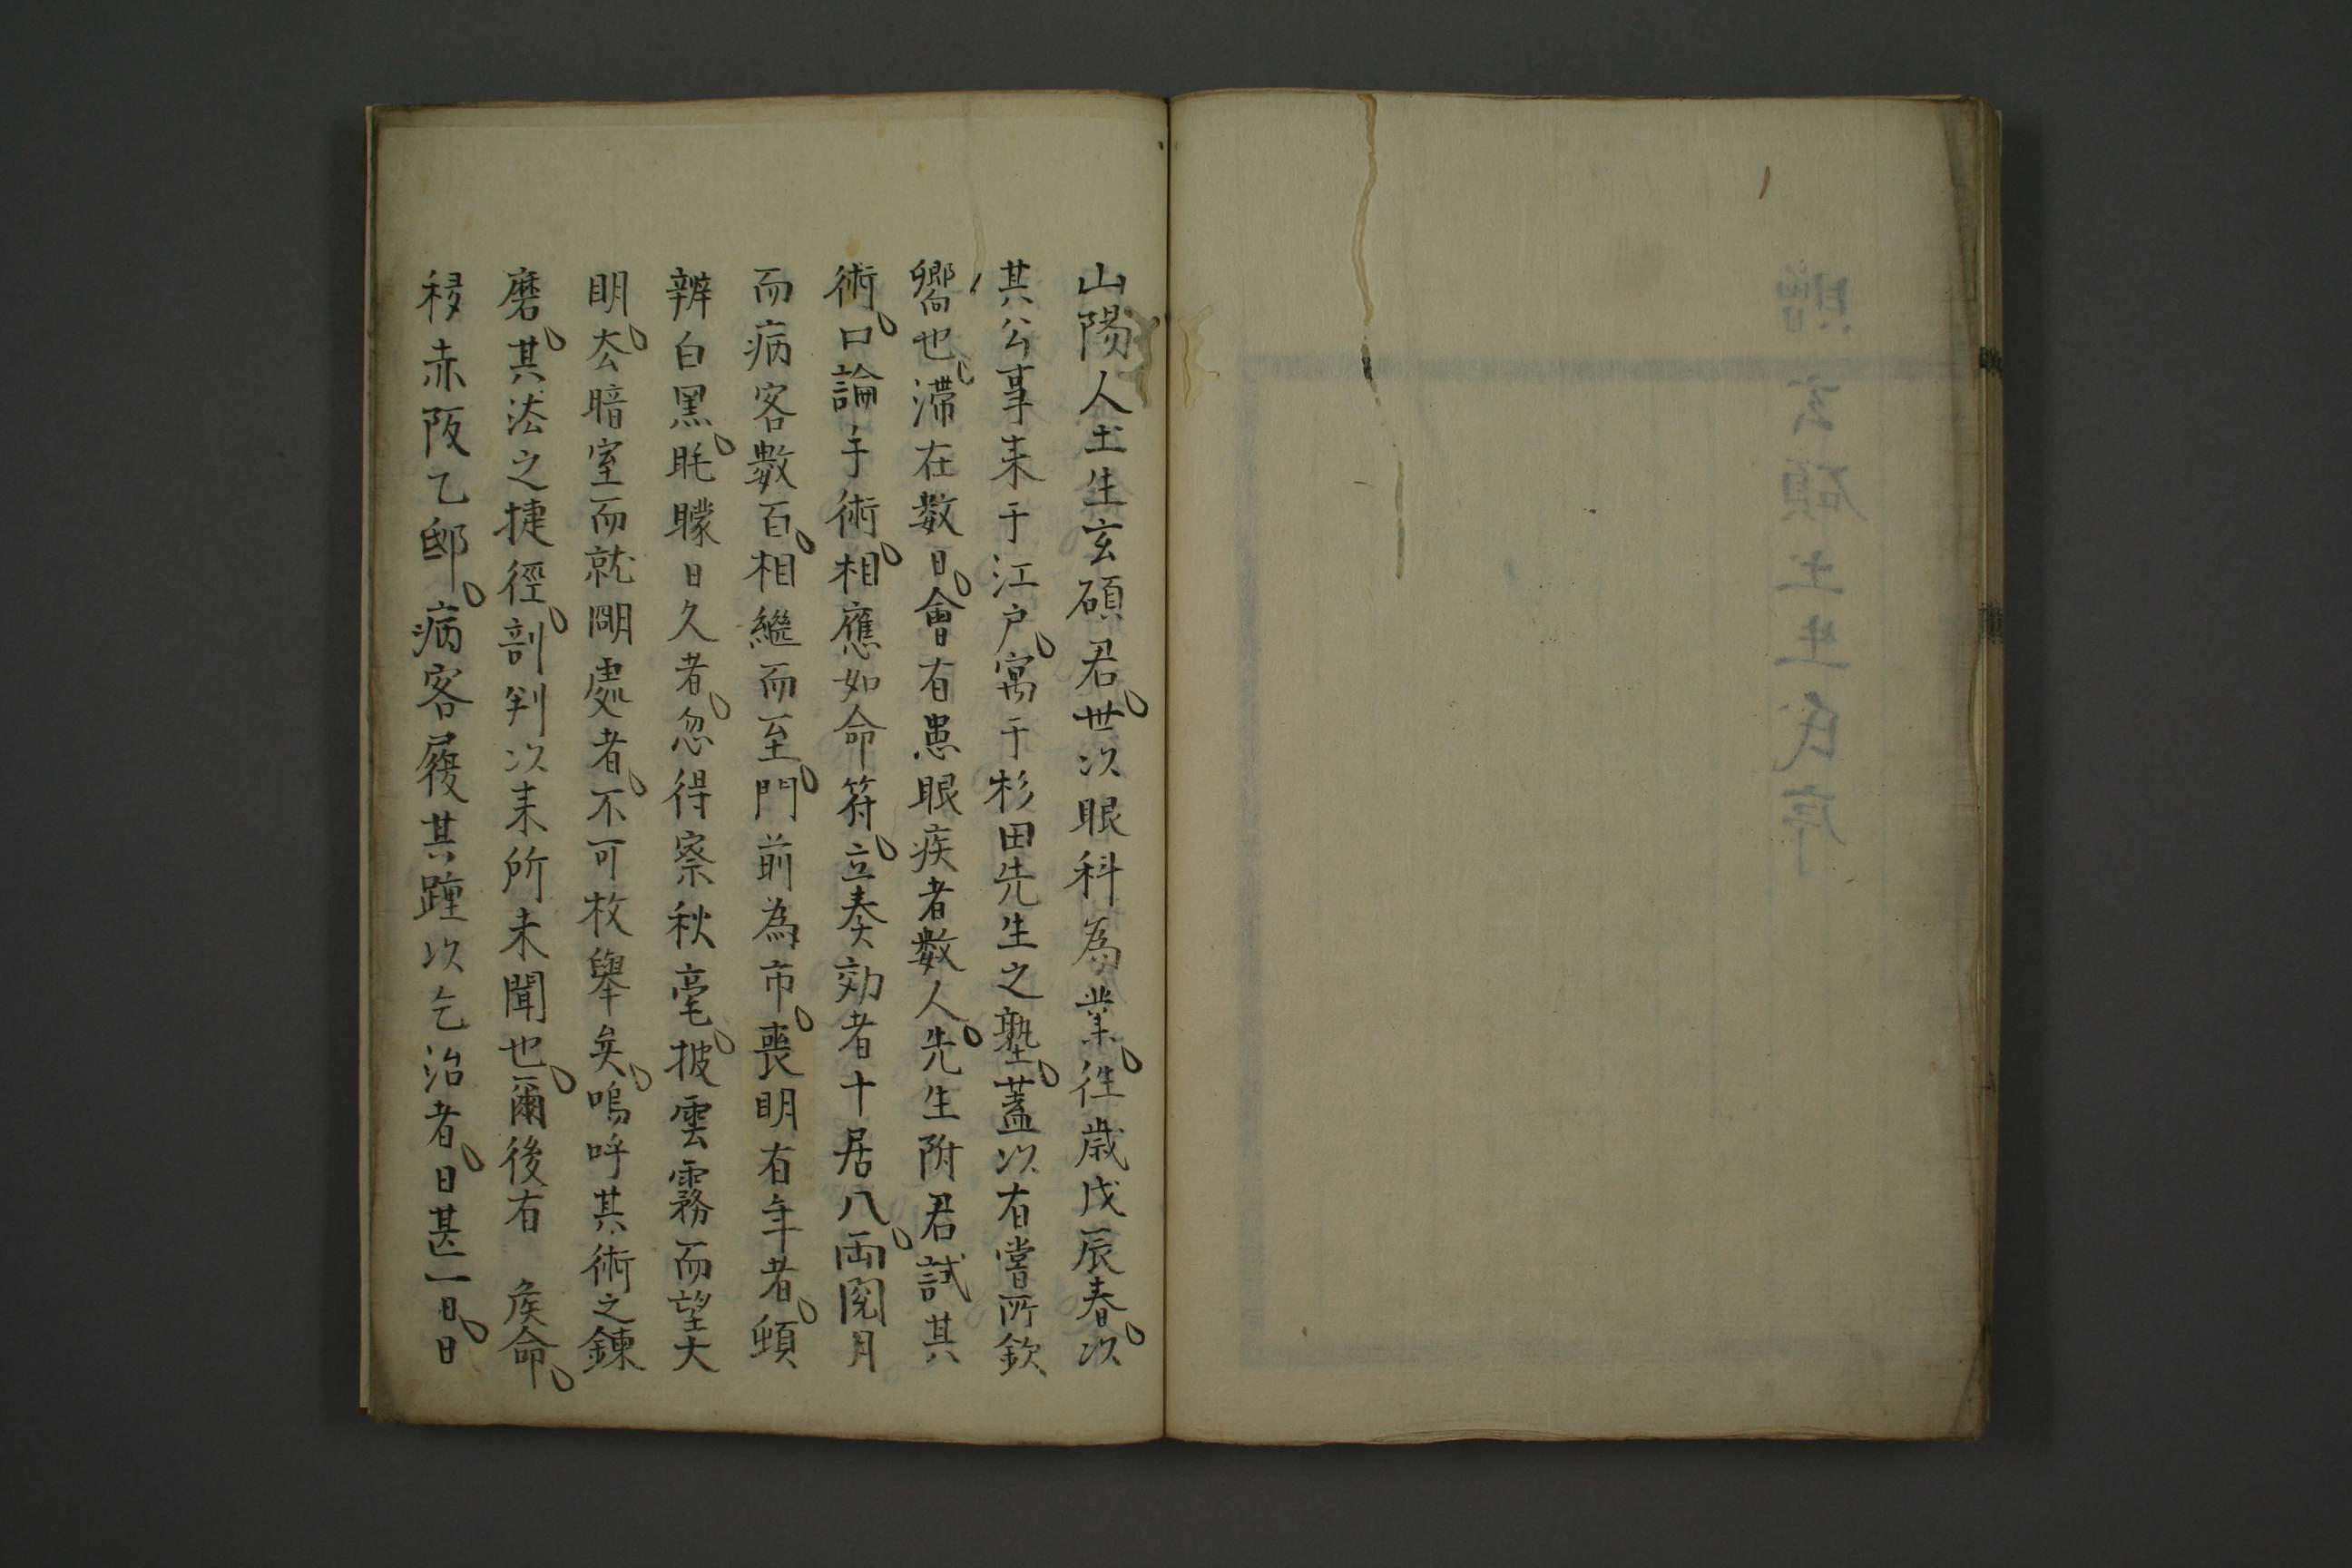 贈玄碩土生氏序
山陽人土生玄碩君世以眼科為業往歲戊辰春以
其公事来于江戸寓于杉田先生之塾蓋以有嘗所欽
嚮也滞在数日會有患眼疾者数人先生附君試其
術口論手術相應如命符立奏効者十居八両閲月
而病客數百相繼而至門前為市喪明有年者頓
辨白黒眊矇日久者忽得察秋毫披雲霧而望大
明厺暗室而就朙處者不可枚舉矣嗚呼其術之錬
磨其法之捷徑剖判以来所未聞也爾後有 矦命
移赤阪乙邸病客履其踵以乞治者日甚一日日